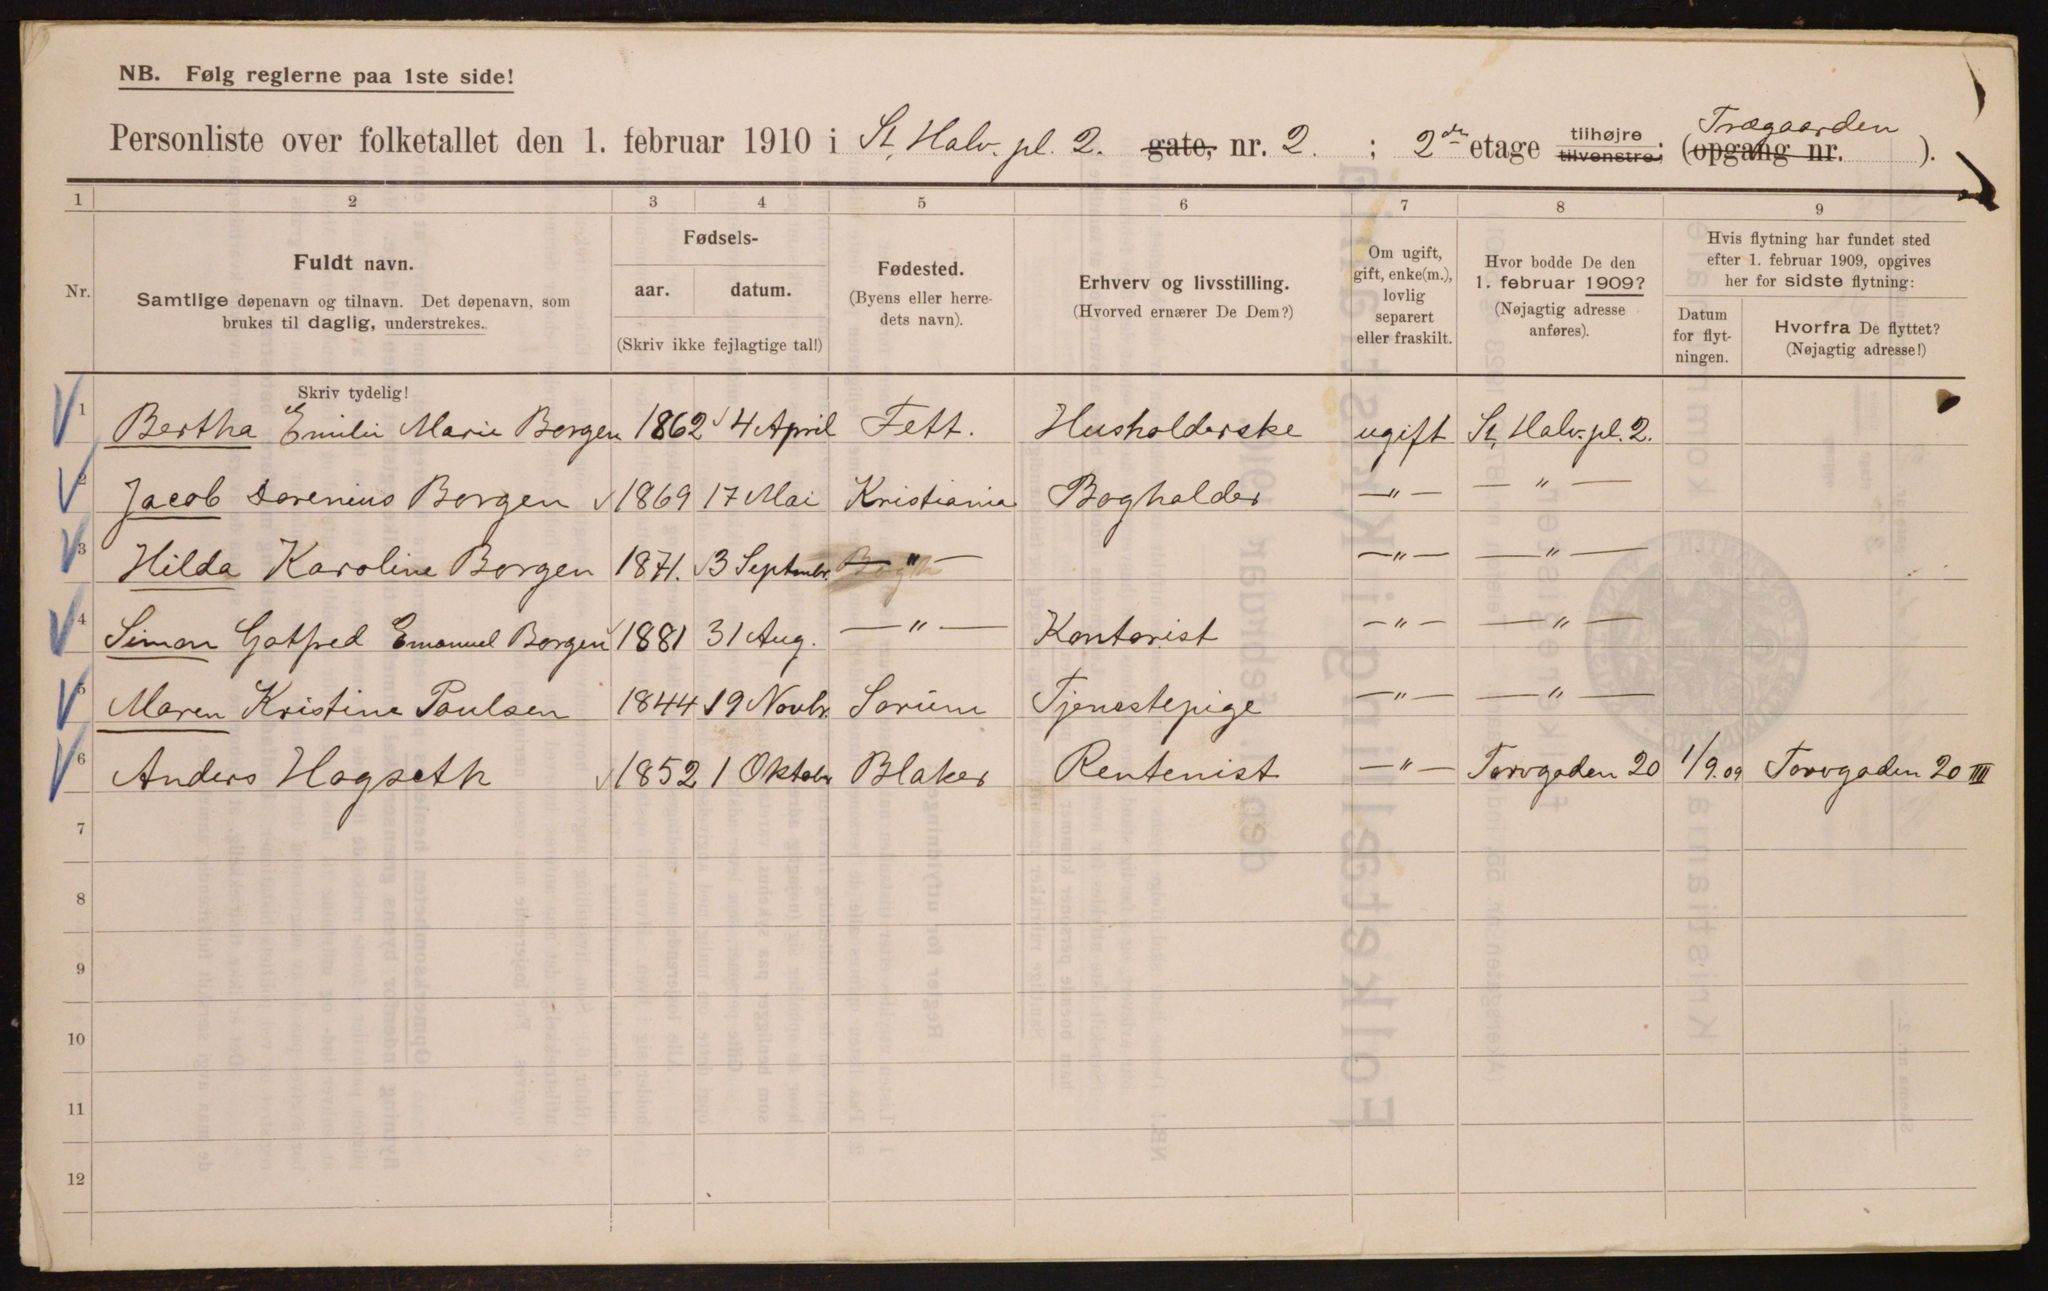 NB. Følg reglerne paa 1ste side!
Personliste over folketallet den 1. februar 1910 i St. Halv. pl. 2. gate, nr. 2. ; 2den etage tilhøjre tilvenstre; (opgang nr. Trægaarden ).
1 2 3 4 5 6 7 8 9
Nr.
Fuldt navn.
Samtlige døpenavn og tilnavn. Det døpenavn, som
brukes til daglig, understrekes.
Fødsels-
aar. datum.
(Skriv ikke fejlagtige tal!)
Fødested.
(Byens eller herre-
dets navn).
Erhverv og livsstilling.
(Hvorved ernærer De Dem?)
Om ugift,
gift, enke(m.),
lovlig
separert
eller fraskilt.
Hvor bodde De den
1. februar 1909?
(Nøjagtig adresse
anføres).
Hvis flytning har fundet sted
efter 1. februar 1909, opgives
her for sidste flytning:
Datum
for flyt-
ningen.
Hvorfra De flyttet?
(Nøjagtig adresse!)
Skriv tydelig!
1 Bertha Emilie Marie Borgen 1862 4 April Fett. Husholderske ugift St. Halv. pl. 2.
2 Jacob Dorenius Borgen 1869 17 Mai Kristiania Bogholder —"— —"—
3 Hilda Karoline Borgen 1871. 3 Septmbr. —"— —"— —"—
4 Simon Gotfred Emanuel Borgen 1881 31 Aug. —"— Kontorist —"— —"—
5 Maren Kristine Paulsen 1844 19 Novbr. Sorum Tjenestepige —"— —"—
6 Anders Hogseth 1852 1 Oktobr Blaker Rentenist —"— Torvgaden 20 1/9.09 Torvgaden 20 III
7
8
9
10
11
12